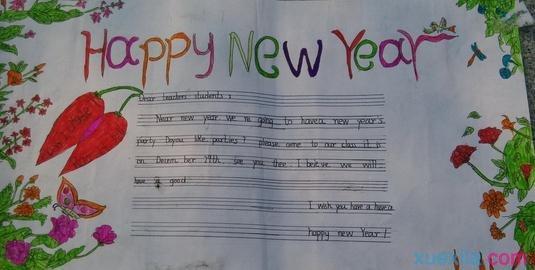 Happy New Year
Dear teachers students,
Near new year we re going to havea new year's
party Doyou like parties? please come to our class it is
on Decem ber 29th. see you thee. I believe we will
have a good
I wish you have a havea
happy new Year!
xuexila.com